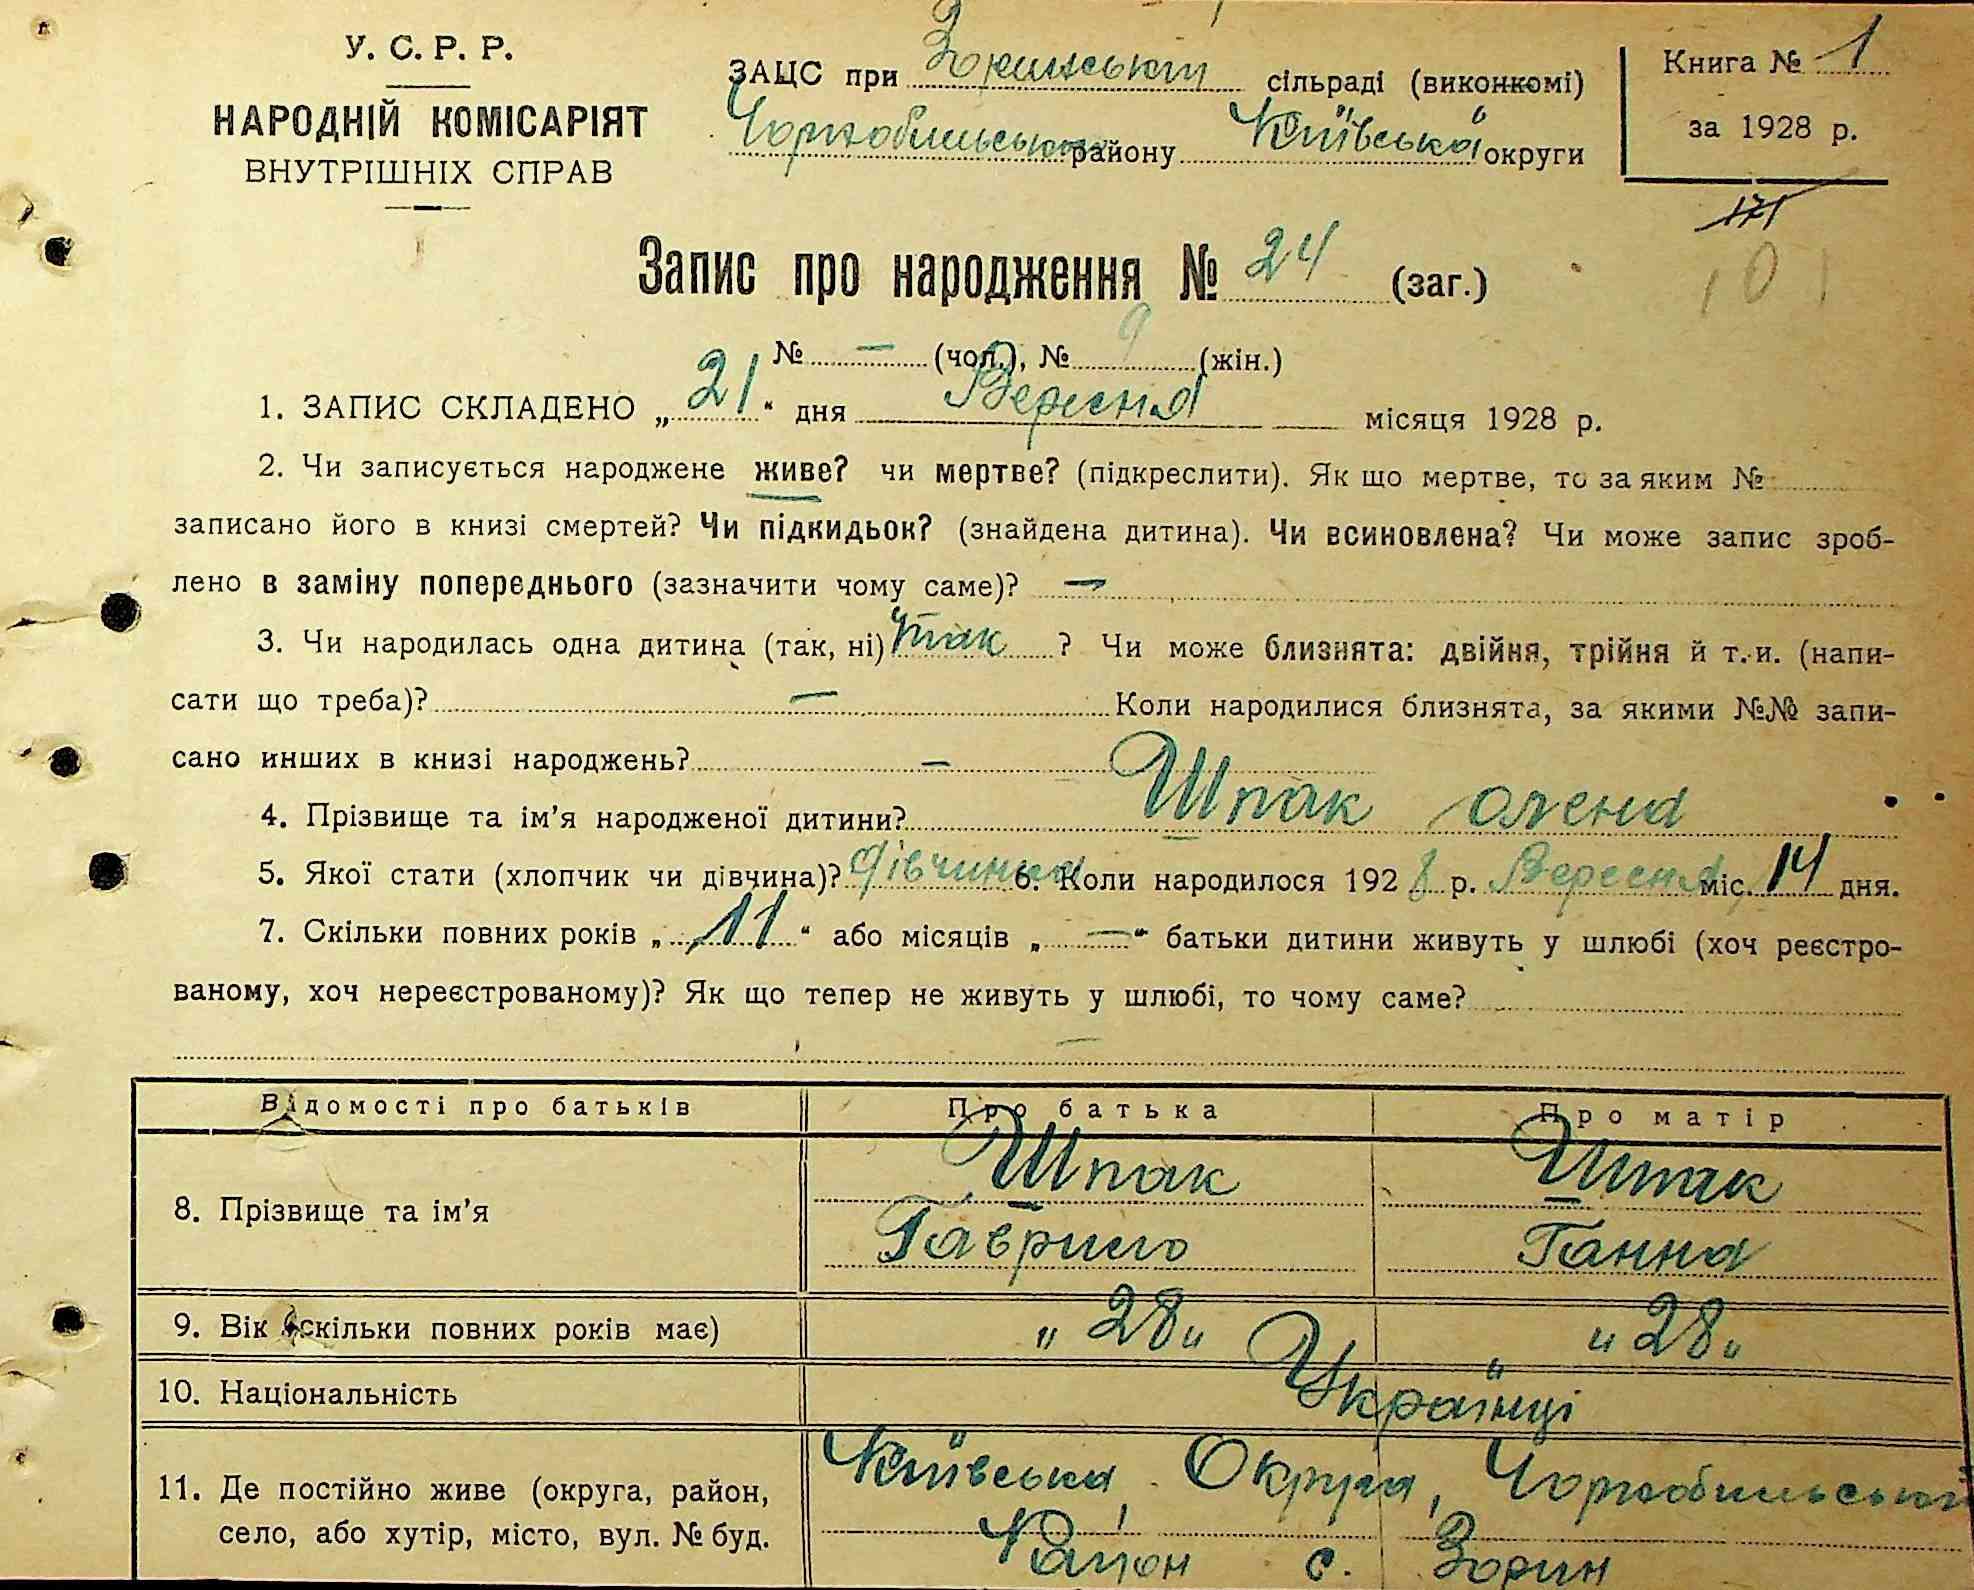 У. С. Р. Р.
НАРОДНІЙ КОМІСАРІЯТ
ВНУТРІШНІХ СПРАВ
ЗАЦС при Зринській сільраді (виконкомі)
Чорнобильського району Київська округи
Книга № 1
за 1928 р.
171
101
Запис про народження № 24 (заг.)
№ — (чол.), № 9 (жін.)
1. ЗАПИС СКЛАДЕНО „ 21 “ дня Вересня місяця 1928 р.
2. Чи записується народжене живе? чи мертве? (підкреслити). Як що мертве, то за яким №
записано його в книзі смертей? Чи підкидьок? (знайдена дитина). Чи всиновлена? Чи може запис зроб-
лено в заміну попереднього (зазначити чому саме)? —
3. Чи народилась одна дитина (так, ні) так ? Чи може близнята: двійня, трійня й т. и. (напи-
сати що треба)? — Коли народилися близнята, за якими №№ запи-
сано инших в книзі народжень? —
4. Прізвище та ім’я народженої дитини? Шпак Олена
5. Якої стати (хлопчик чи дівчина)? дівчинка 6. Коли народилося 1928 р. Вересня міс. 14 дня.
7. Скільки повних років „ 11 “ або місяців „ — “ батьки дитини живуть у шлюбі (хоч реєстро-
ваному, хоч нереєстрованому)? Як що тепер не живуть у шлюбі, то чому саме?
—
Відомості про батьків Про батька Про матір
8. Прізвище та ім’я Шпак Шпак
Гаврило Ганна
9. Вік (скільки повних років має) „ 28 „ „ 28 „
10. Національність Українці
11. Де постійно живе (округа, район, Київська Округа, Чорнобильський
село, або хутір, місто, вул. № буд. Район с. Зорин